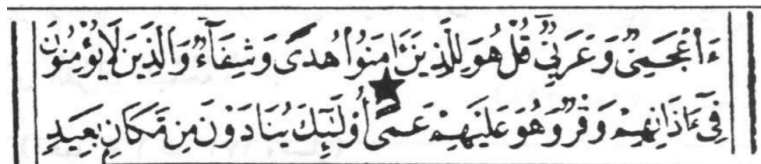 ءَا۬عْجَمِىٌّ وَعَرَبِىٌّ قُلْ هُوَ لِلَّذِينَ ءَامَنُوا۟ هُدًى وَشِفَآءٌ وَالَّذِينَ لَا يُؤْمِنُونَ
فِىٓ ءَاذَانِهِمْ وَقْرٌ وَهُوَ عَلَيْهِمْ عَمًى أُو۟لَٰٓئِكَ يُنَادَوْنَ مِن مَّكَانٍۭ بَعِيدٍ